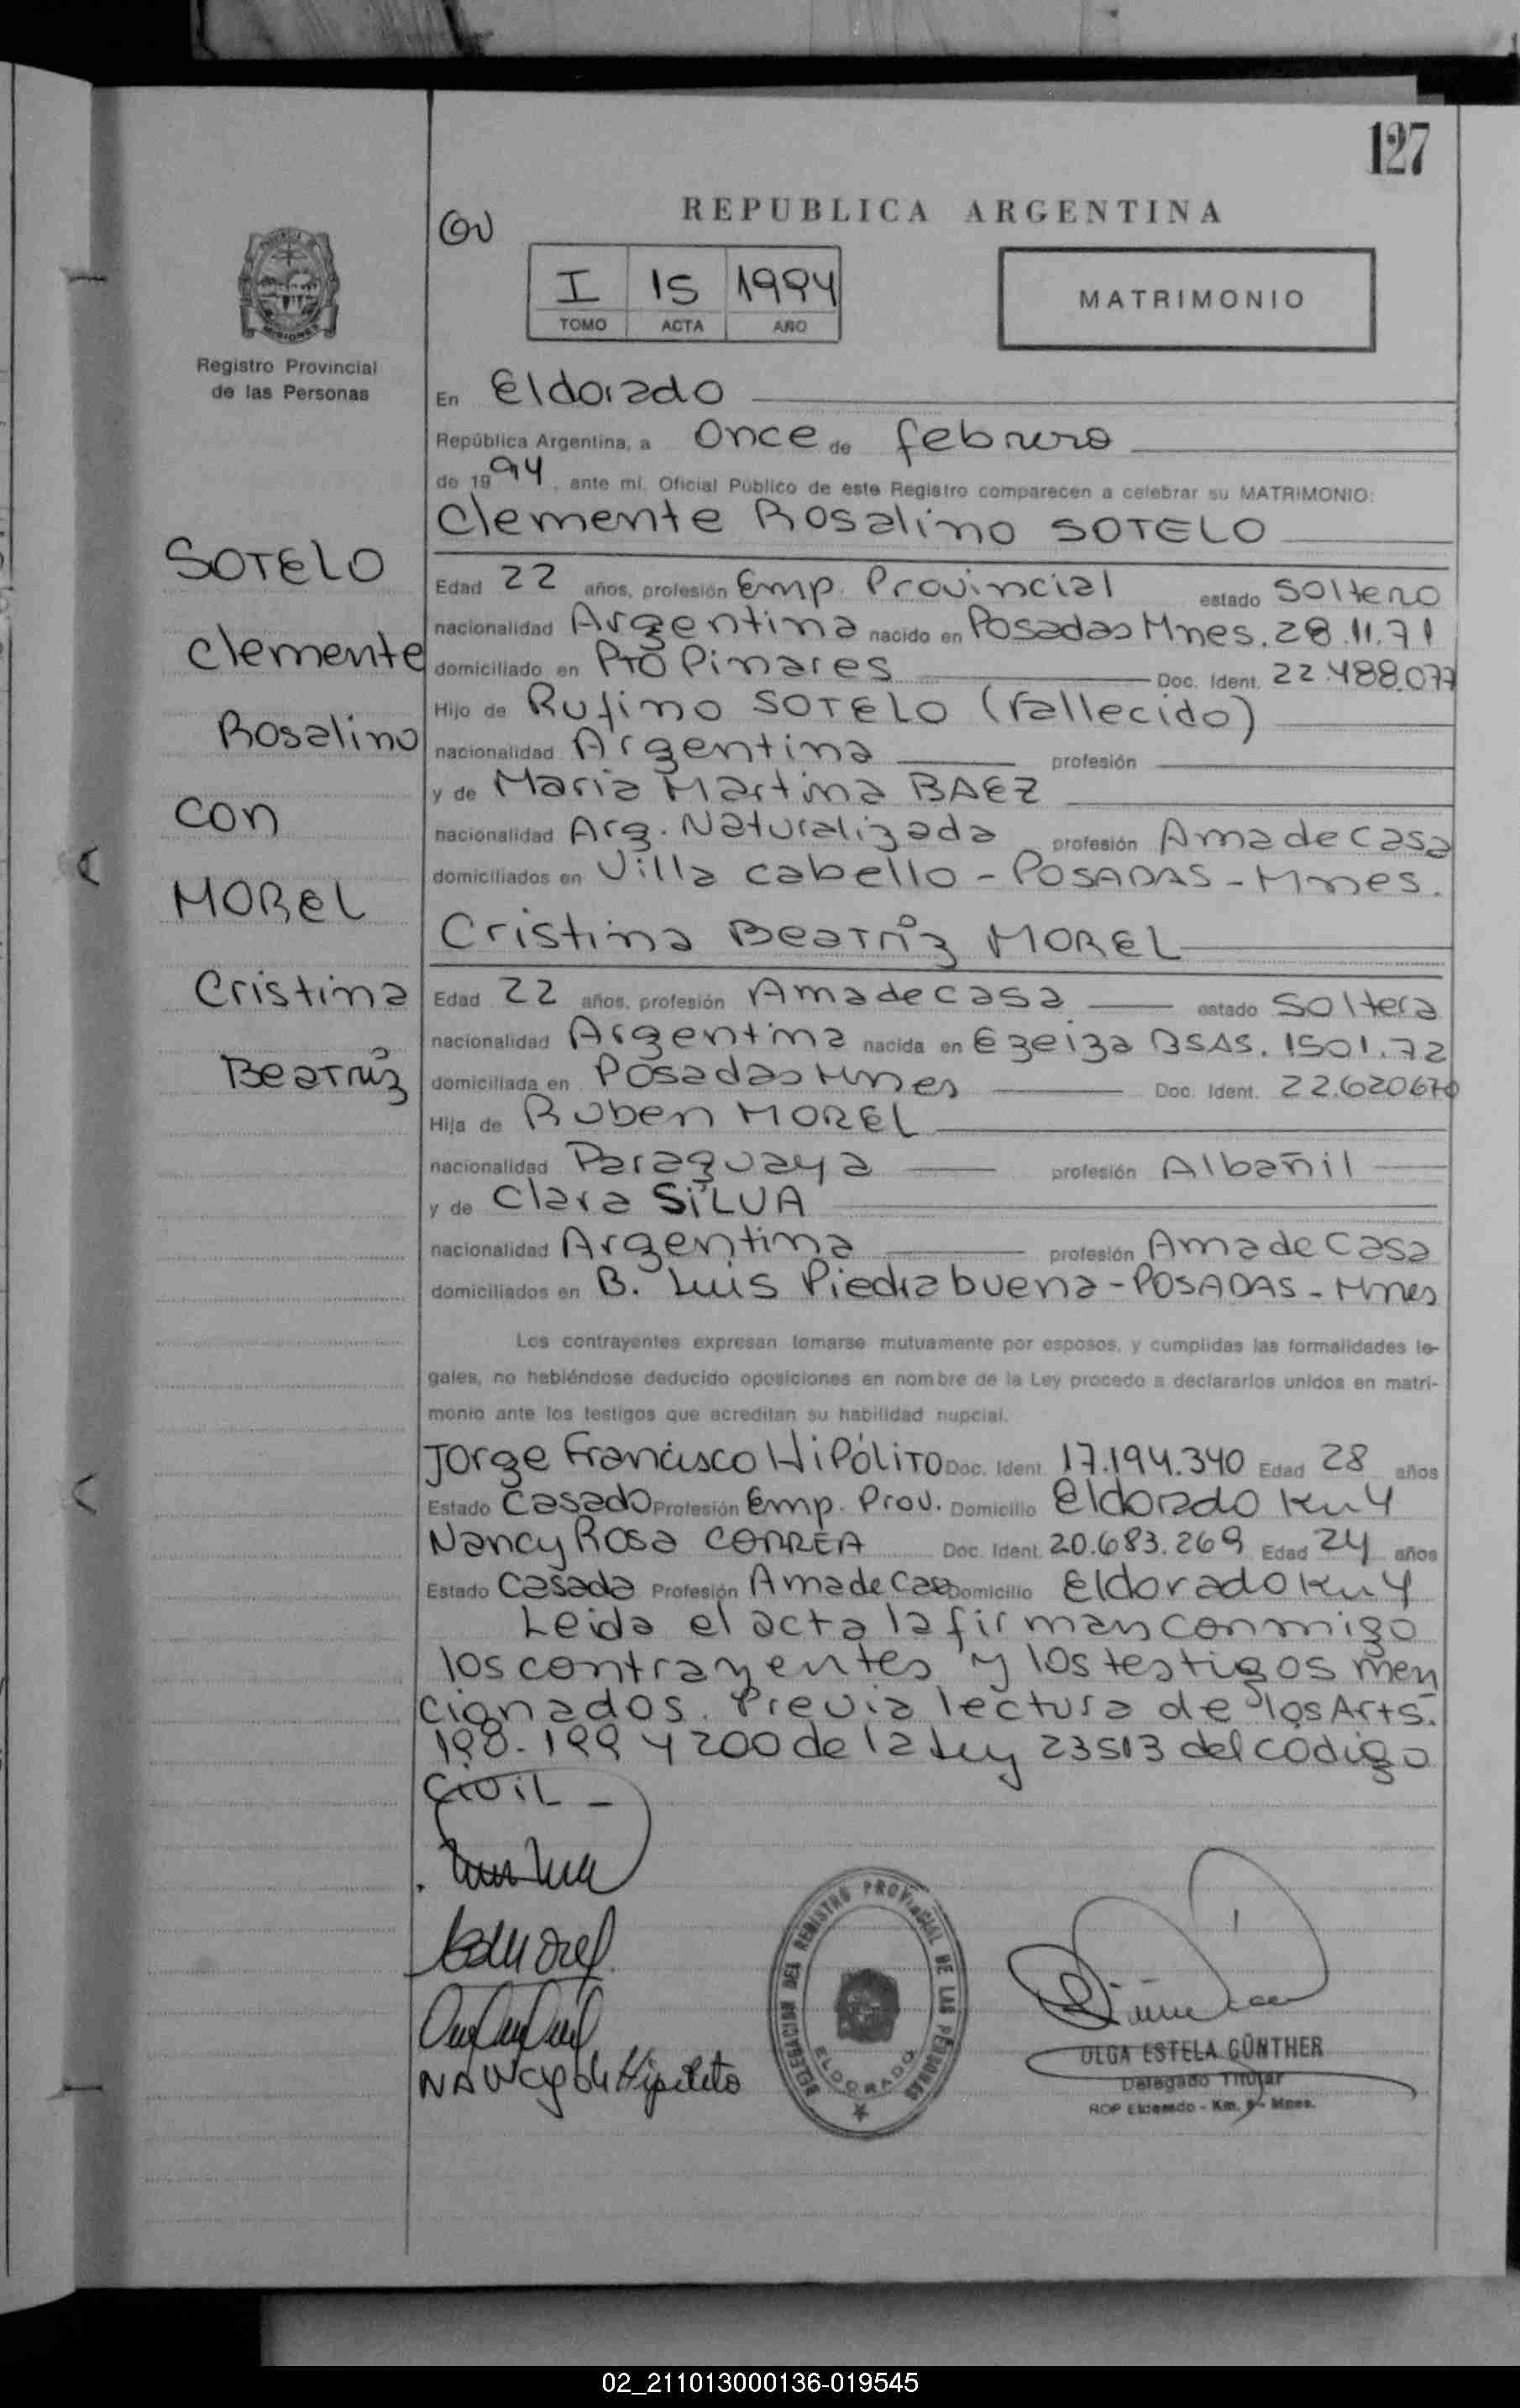 127
REPUBLICA ARGENTINA
I 15 1994
TOMO ACTA AÑO
MATRIMONIO
Registro Provincial
de las Personas
En Eldorado
República Argentina, a Once de febrero
de 1994, ante mí, Oficial Público de este Registro comparecen a celebrar su MATRIMONIO:
Clemente Rosalino SOTELO
SOTELO
Clemente
Rosalino
con
MOREL
Cristina
Beatriz
Edad 22 años, profesión Emp. Provincial estado Soltero
nacionalidad Argentina nacido en Posadas Mnes. 28.11.71
domiciliado en Pto Pinares Doc. Ident. 22.488.077
Hijo de Rufino SOTELO (Fallecido)
nacionalidad Argentina profesión
y de Maria Martina BAEZ
nacionalidad Arg. Naturalizada profesión Ama de casa
domiciliados en Villa cabello - POSADAS - Mnes.
Cristina Beatriz MOREL
Edad 22 años, profesión Ama de casa estado Soltera
nacionalidad Argentina nacida en Ezeiza BSAS. 1501.72
domiciliada en Posadas Mnes Doc. Ident. 22.620670
Hija de Ruben MOREL
nacionalidad Paraguaya profesión Albañil
y de Clara SILVA
nacionalidad Argentina profesión Ama de Casa
domiciliados en B. Luis Piedrabuena - POSADAS - Mnes
Los contrayentes expresan tomarse mutuamente por esposos, y cumplidas las formalidades le-
gales, no habiéndose deducido oposiciones en nombre de la Ley procedo a declararlos unidos en matri-
monio ante los testigos que acreditan su habilidad nupcial.
Jorge Francisco HIPÓLITO Doc. Ident. 17.194.340 Edad 28 años
Estado Casado Profesión Emp. Prov. Domicilio Eldorado Km 4
Nancy Rosa CORREA Doc. Ident. 20.683.269 Edad 24 años
Estado Casada Profesión Ama de Casa Domicilio Eldorado Km 4
Leida el acta la firman conmigo
los contrayentes y los testigos men
cionados. Previa lectura de los Arts.
198- 199 y 200 de la Ley 23513 del código
civil -
NANCY de Hipolito
DELEGACION DEL REGISTRO PROVINCIAL DE LAS PERSONAS
ELDORADO
OLGA ESTELA GÜNTHER
Delegado Titular
RCP Eldorado - Km. - Mnes.
02_211013000136-019545